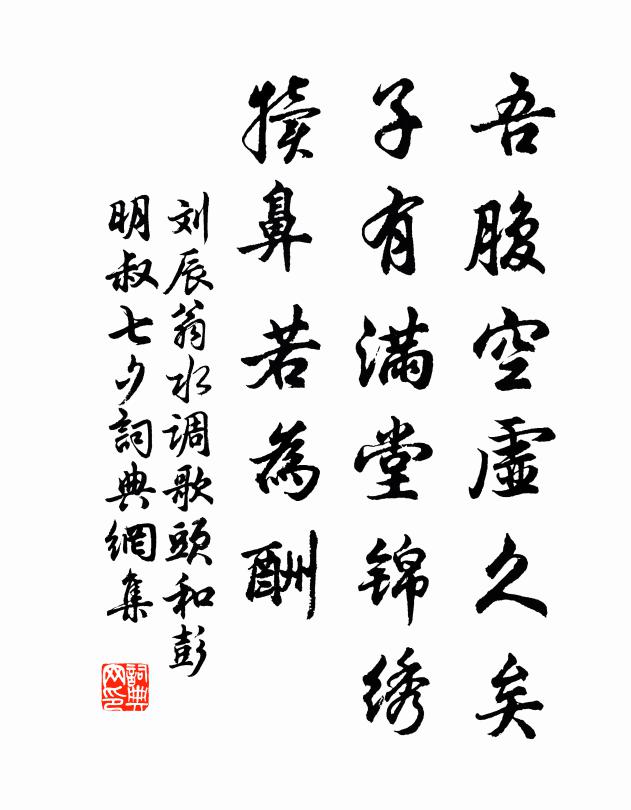 吾腹空虚久矣
子有满堂锦绣
犊鼻若為酬
刘辰翁水调歌頭和彭
明叔七夕詞典網集
詞典
网印